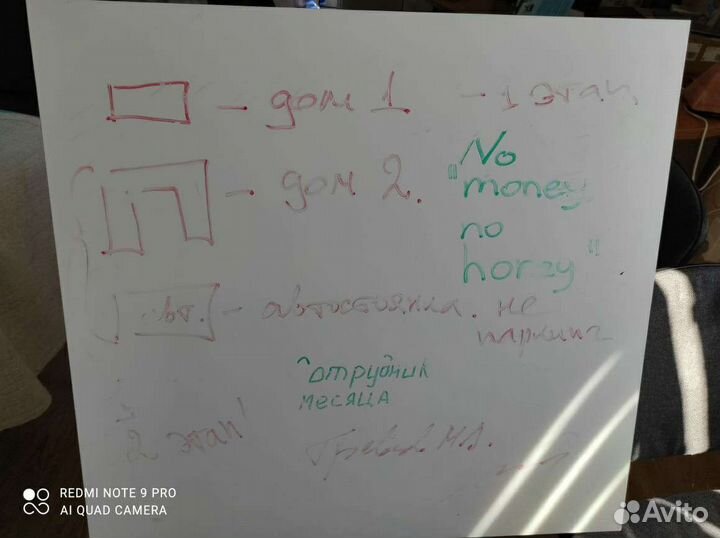 - дом 1 - 1 этап
- дом 2.
"No
money
no
horzy"
авт. - автостоянка. не
паркинг
сотрудник
месяца
2 этап
REDMI NOTE 9 PRO
AI QUAD CAMERA
Avito